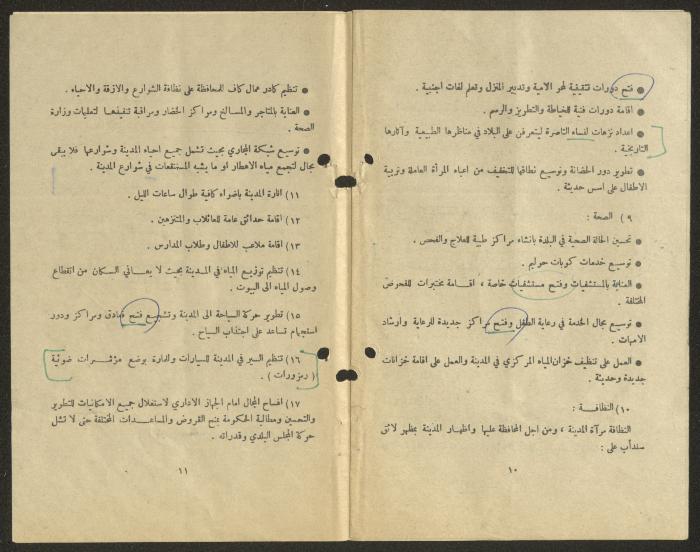 ● فتح دورات تثقيفية لمحو الامية وتدبير المنزل وتعلم لغات اجنبية .
● اقامة دورات فنية للخياطة والتطريز والرسم .
● اعداد نزهات لنساء الناصرة ليتعرفن على البلاد في مناظرها الطبيعية وآثارها
التاريخية .
● تطوير دور الحضانة وتوسيع نطاقها للتخفيف من اعباء المرأة العاملة وتربية
الاطفال على اسس حديثة .
٩ ) الصحة :
● تحسين الحالة الصحية في البلدة بانشاء مراكز طبية للعلاج والفحص .
● توسيع خدمات كوبات حوليم .
● العناية بالمستشفيات وفتح مستشفيات خاصة ، اقامة مختبرات للفحوض
المختلفة .
● توسيع مجال الخدمة في رعاية الطفل وفتح مراكز جديدة للرعاية وارشاد
الامهات .
● العمل على تنظيف خزان المياه المركزي في المدينة والعمل على اقامة خزانات
جديدة وحديثة .
١٠) النظافة :
النظافة مرآة المدينة ، ومن اجل المحافظة عليها واظهار المدينة بمظهر لائق
سندأب على :
١٠
● تنظيم كادر عمال كاف للمحافظة على نظافة الشوارع والازقة والاحياء .
● العناية بالمتاجر والمسالخ ومراكز الخضار ومراقبة تنفيذها لتعليمات وزارة
الصحة .
● توسيع شبكة المجاري بحيث تشمل جميع احياء المدينة وشوارعها فلا يبقى
مجال لتجمع مياه الامطار او ما يشبه المستنقعات في شوارع المدينة .
١١) انارة المدينة باضواء كافية طوال ساعات الليل .
١٢) اقامة حدائق عامة للعائلات والمتنزهين .
١٣) اقامة ملاعب للاطفال وطلاب المدارس .
١٤) تنظيم توزيع المياه في المدينة بحيث لا يعاني السكان من انقطاع
وصول المياه الى البيوت .
١٥) تطوير حركة السياحة الى المدينة وتشجيع فتح فنادق ومراكز ودور
استجمام تساعد على اجتذاب السياح .
١٦) تنظيم السير في المدينة للسيارات والمارة بوضع مؤشرات ضوئية
( رمزورات ) .
١٧) افساح المجال امام الجهاز الاداري لاستغلال جميع الامكانيات للتطوير
والتحسين ومطالبة الحكومة بمنح القروض والمساعدات المختلفة حتى لا تشل
حركة المجلس البلدي وقدراته .
١١